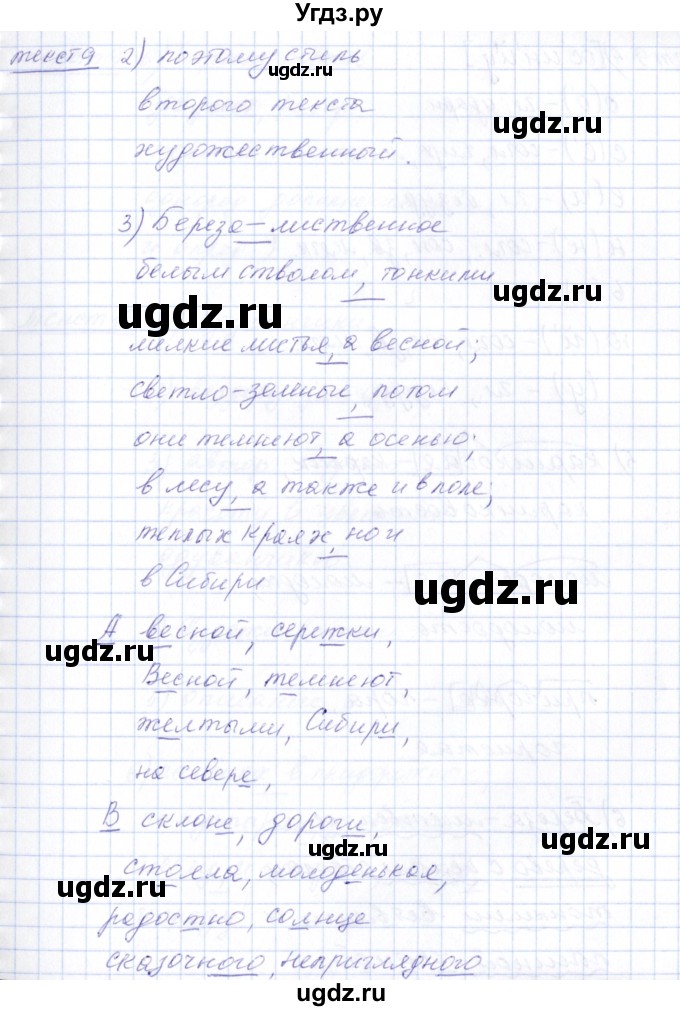 Угдз.ру
текст 9 2) поэтому стиль
ugdz.ru
второго текста
ugdz.ru
художественный.
3) Береза – лиственное
белым стволом, тонкими
ugdz.ru
ugdz.ru
мелкие листья, а весной;
светло-зеленые, потом
они темнеют, а осенью;
в лесу, а также и в поле;
теплых краях, но и
в Сибири
ugdz.ru
А весной, сережки,
ugdz.ru
Весной, темнеют,
желтыми, Сибири,
на севере,
В склоне, дороги,
ugdz.ru
ugdz.ru
стояла, молоденькая,
ugdz.ru
радостно, солнце
сказочного, неприглядного
ugdz.ru
ugdz.ru